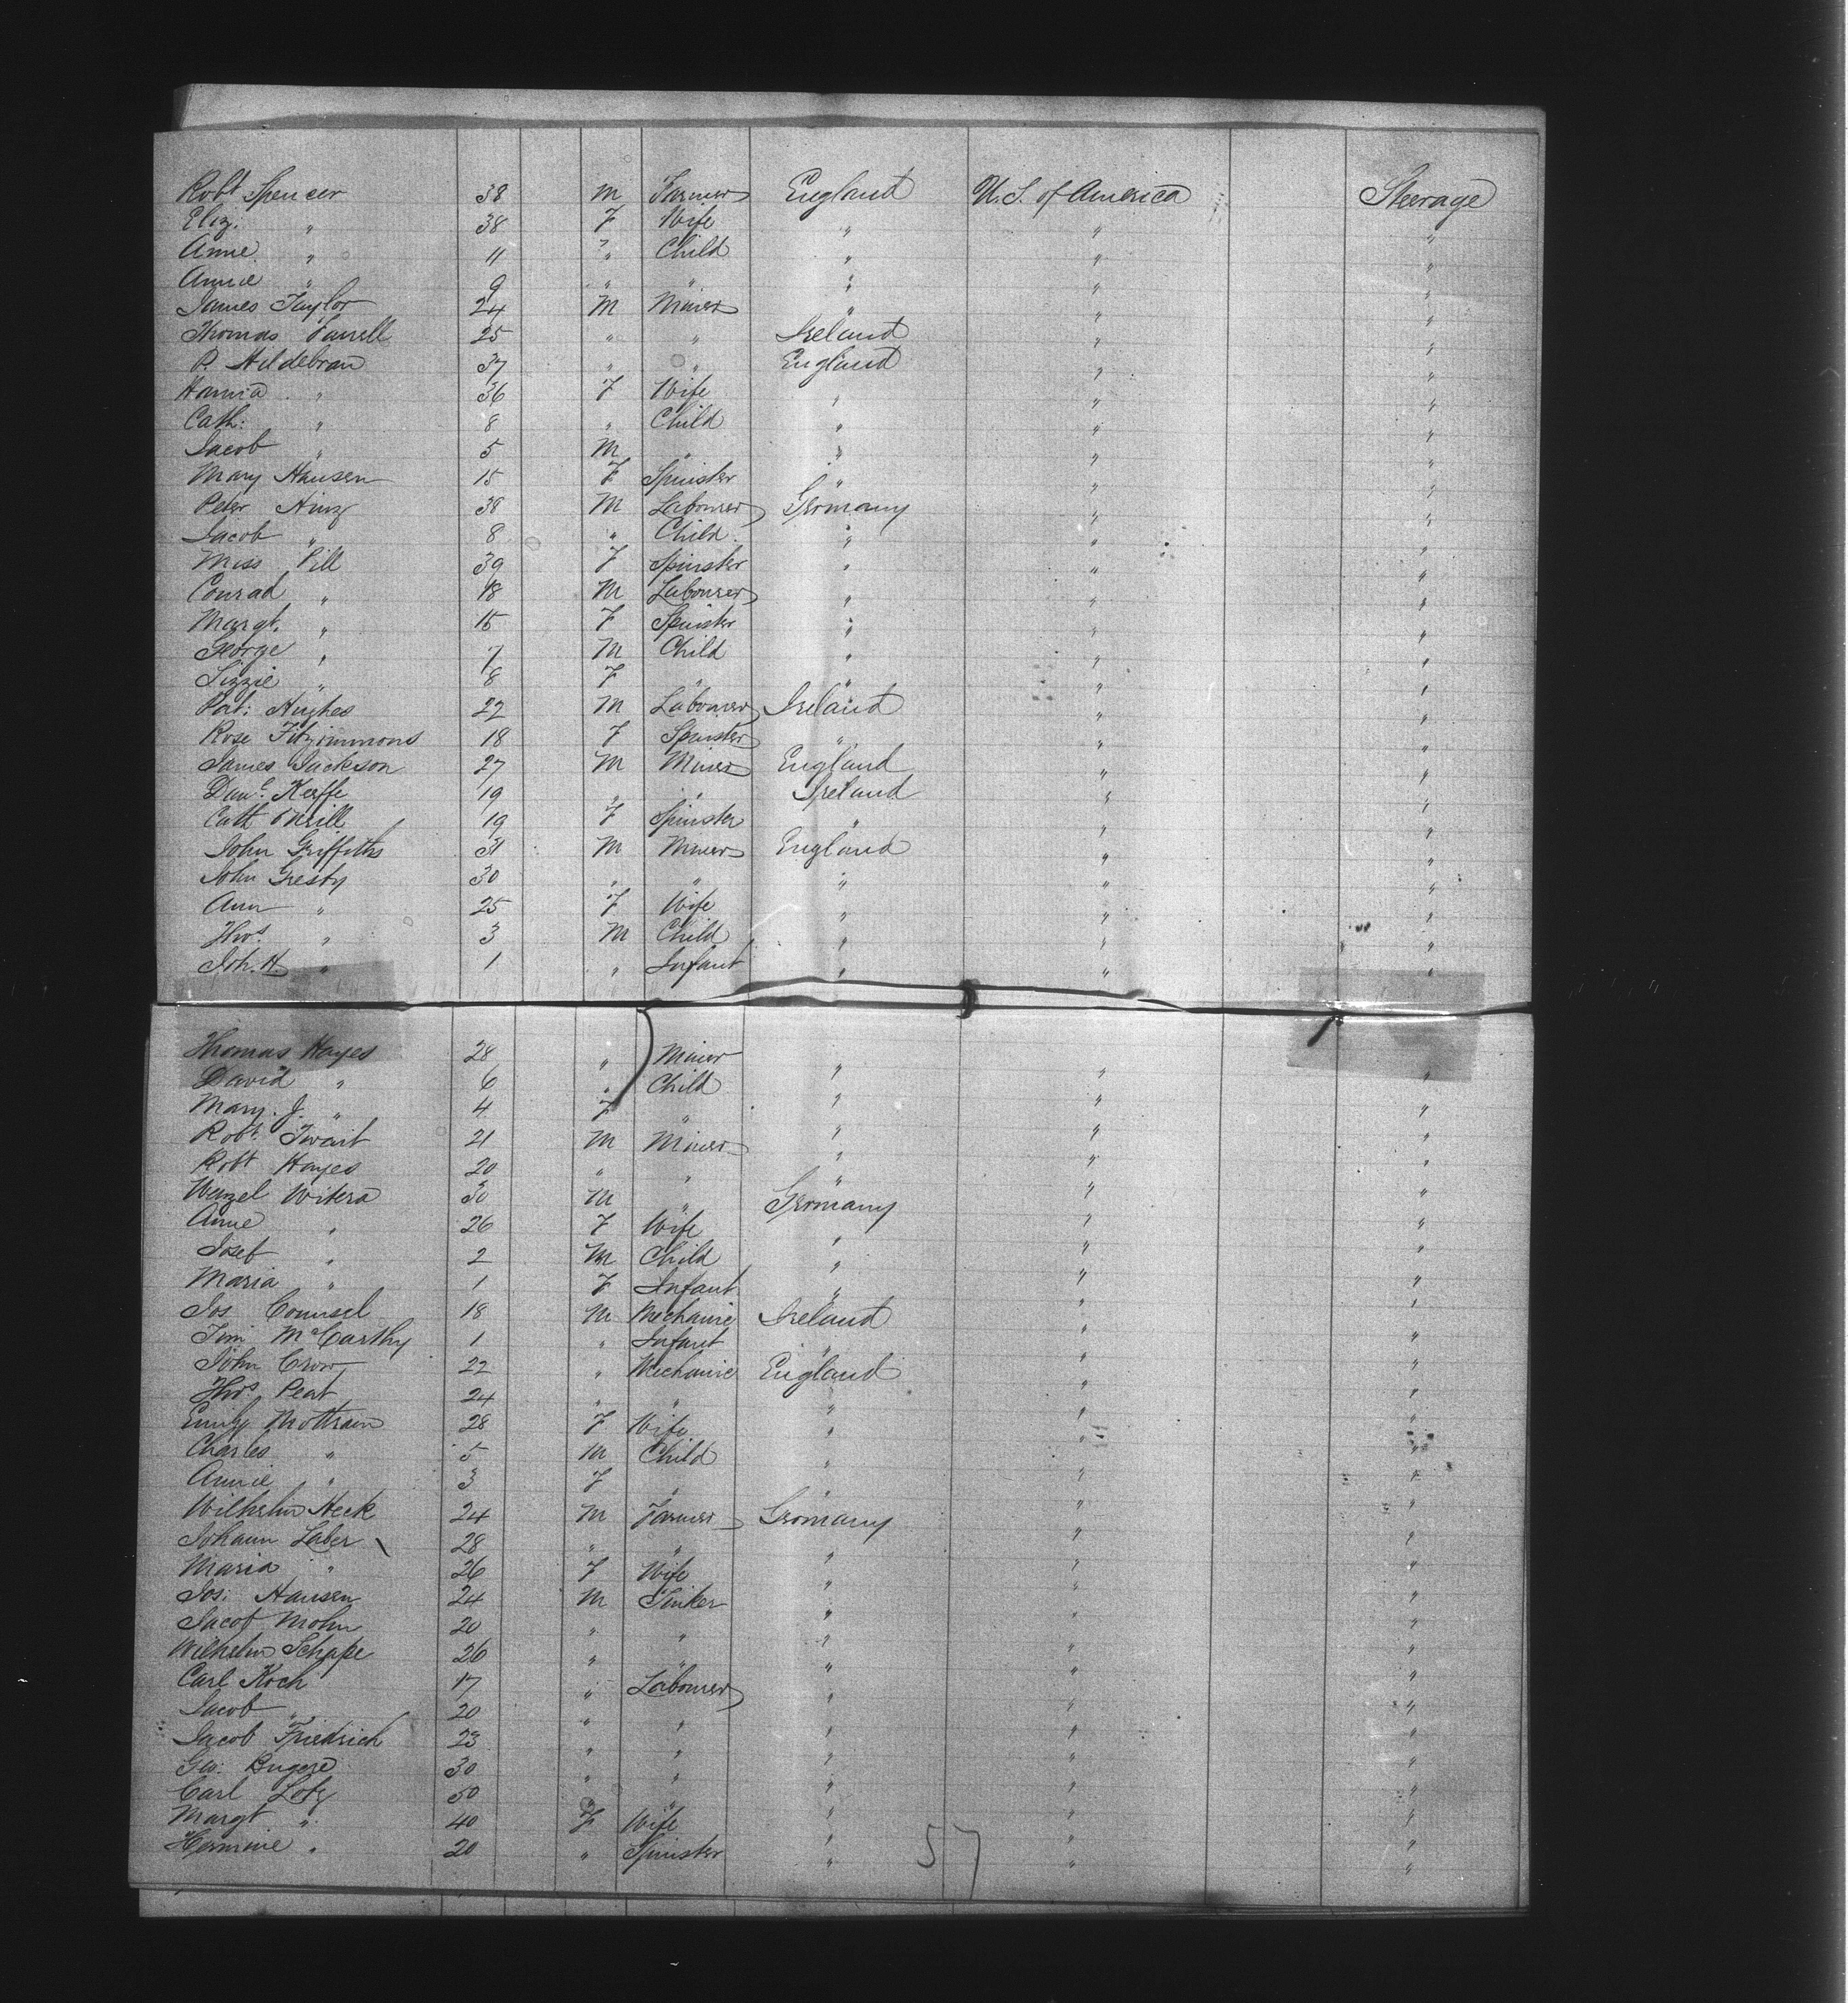 Robt Spencer 38 M Farmer England U.S. of America Steerage
Eliz. " 38 F Wife " " "
Anne " 11 " Child " " "
Annie " 9 " " " " "
James Taylor 24 M Miner " " "
Thomas Farrell 25 " " Ireland " "
P. Hildebran 37 " " England " "
Hannia " 36 F Wife " " "
Cath: " 8 " Child " " "
Jacob " 5 M " " " "
Mary Hansen 15 F Spinster " " "
Peter Hinz 38 M Labourer Germany " "
Jacob " 8 " Child " " "
Miss Pill 39 F Spinster " " "
Conrad " 18 M Labourer " " "
Margt. " 15 F Spinster " " "
George " 7 M Child " " "
Lizzie " 8 F " " " "
Pat: Hughes 22 M Labourer Ireland " "
Rose Fitzimmons 18 F Spinster " " "
James Jackson 27 M Miner England " "
Danl. Keffe 19 " " Ireland " "
Cath O'Neill 19 F Spinster " " "
John Griffiths 31 M Miner England " "
John Gresty 30 " " " " "
Ann " 25 F Wife " " "
Thos. " 3 M Child " " "
Joh. H. " 1 " Infant " " "
Thomas Hayes 28 " Miner " " "
David " 6 " Child " " "
Mary. J. " 4 F " " " "
Robt. Twait 21 M Miner " " "
Robt Hayes 20 " " " " "
Wenzel Witera 30 M " Germany " "
Anne " 26 F Wife " " "
Josef " 2 M Child " " "
Maria " 1 F Infant " " "
Jos Counsel 18 M Mechanic Ireland " "
Tim McCarthy 1 " Infant " " "
John Crow 22 " Mechanic England " "
Thos. Peat 24 " " " " "
Emily Mottram 28 F Wife " " "
Charles " 5 M Child " " "
Annie " 3 F " " " "
Wilhelm Heck 24 M Farmer Germany " "
Johann Laber 28 " " " " "
Maria " 26 F Wife " " "
Jos: Hansen 24 M Tinker " " "
Jacob Mohn 20 " " " " "
Wilhelm Schape 26 " " " " "
Carl Koch 17 " Labourer " " "
Jacob " 20 " " " " "
Jacob Friedrich 23 " " " " "
Geo: 30 " " " " "
Carl Lotz 50 " " " " "
Margt " 40 F Wife " " "
Hermine " 20 " Spinster " " "
57